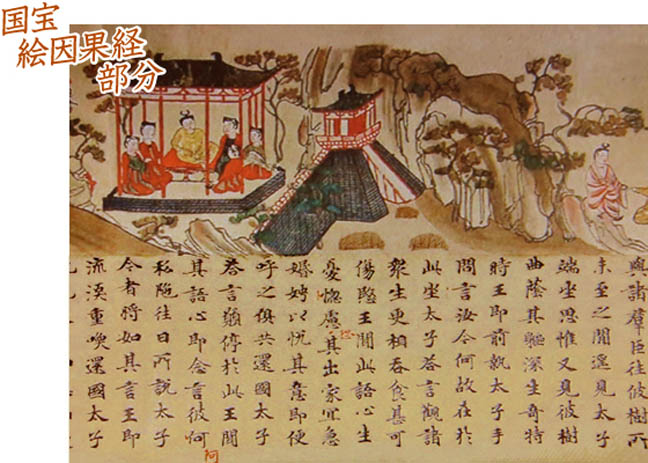 国宝
絵因果経
部分
與諸羣臣往彼樹所
未至之間遥見太子
端坐思惟又見彼樹
曲蔭其軀深生奇特
時王即前執太子手
問言汝今何故在於
此坐太子荅言觀諸
衆生更相吞食甚可
傷愍王聞此語心生
憂惱慮其出家宜急
婚娉以悦其意即便
呼之俱共還國太子
荅言願停於此王聞
其語心即念言彼何
阿
私陁往日所說太子
今者將如其言王即
流淚重喚還國太子